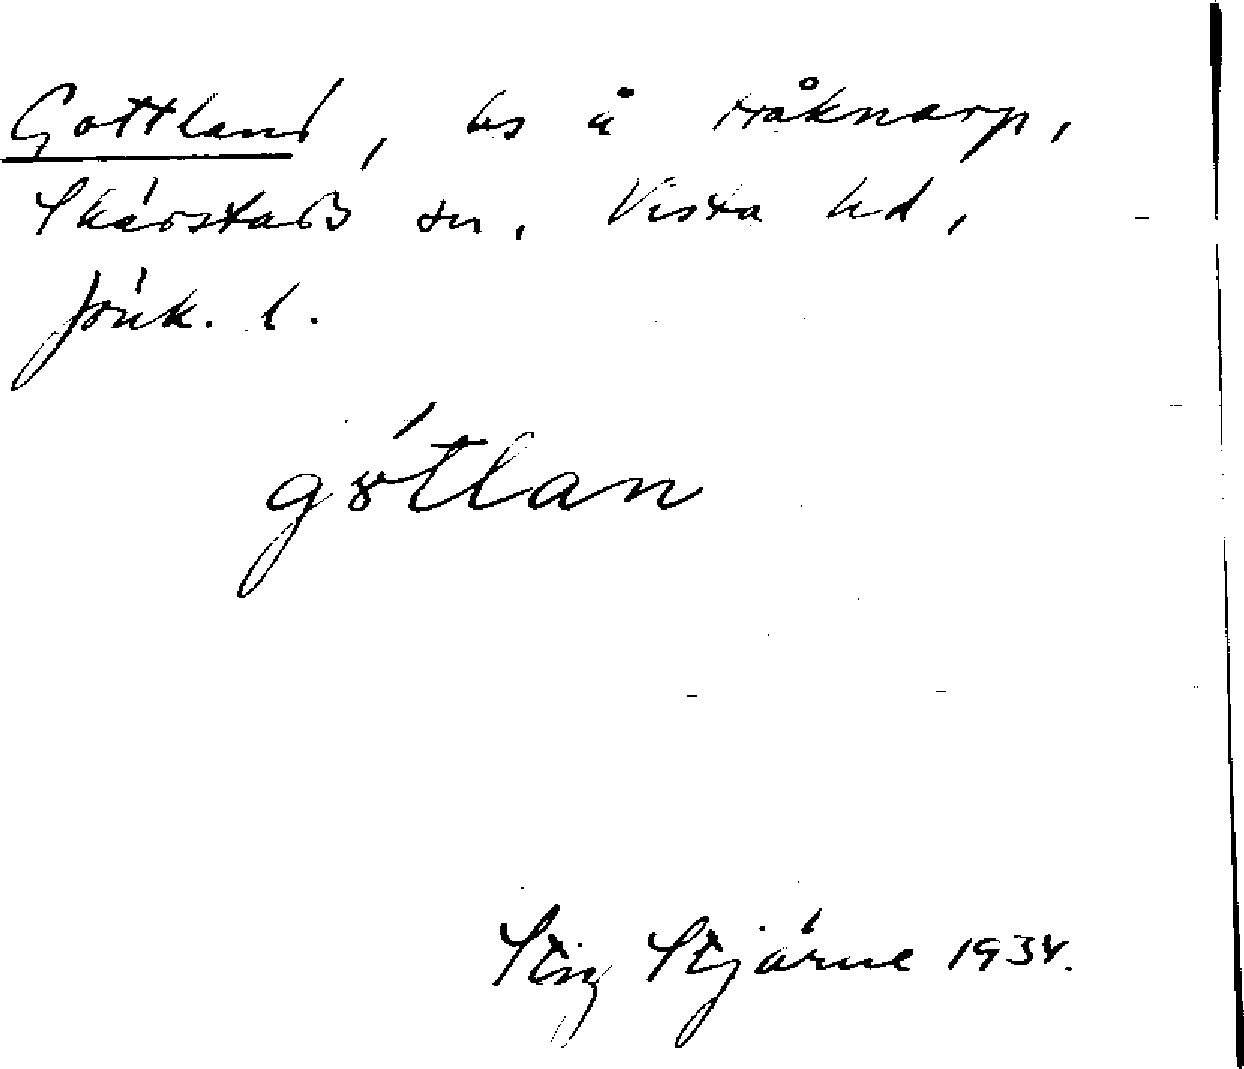 Gottland, ls å Håknarp,
Skärstads sn. Vista hd,
Jönk. l.
gótlan
Stig Stjärne 1934.